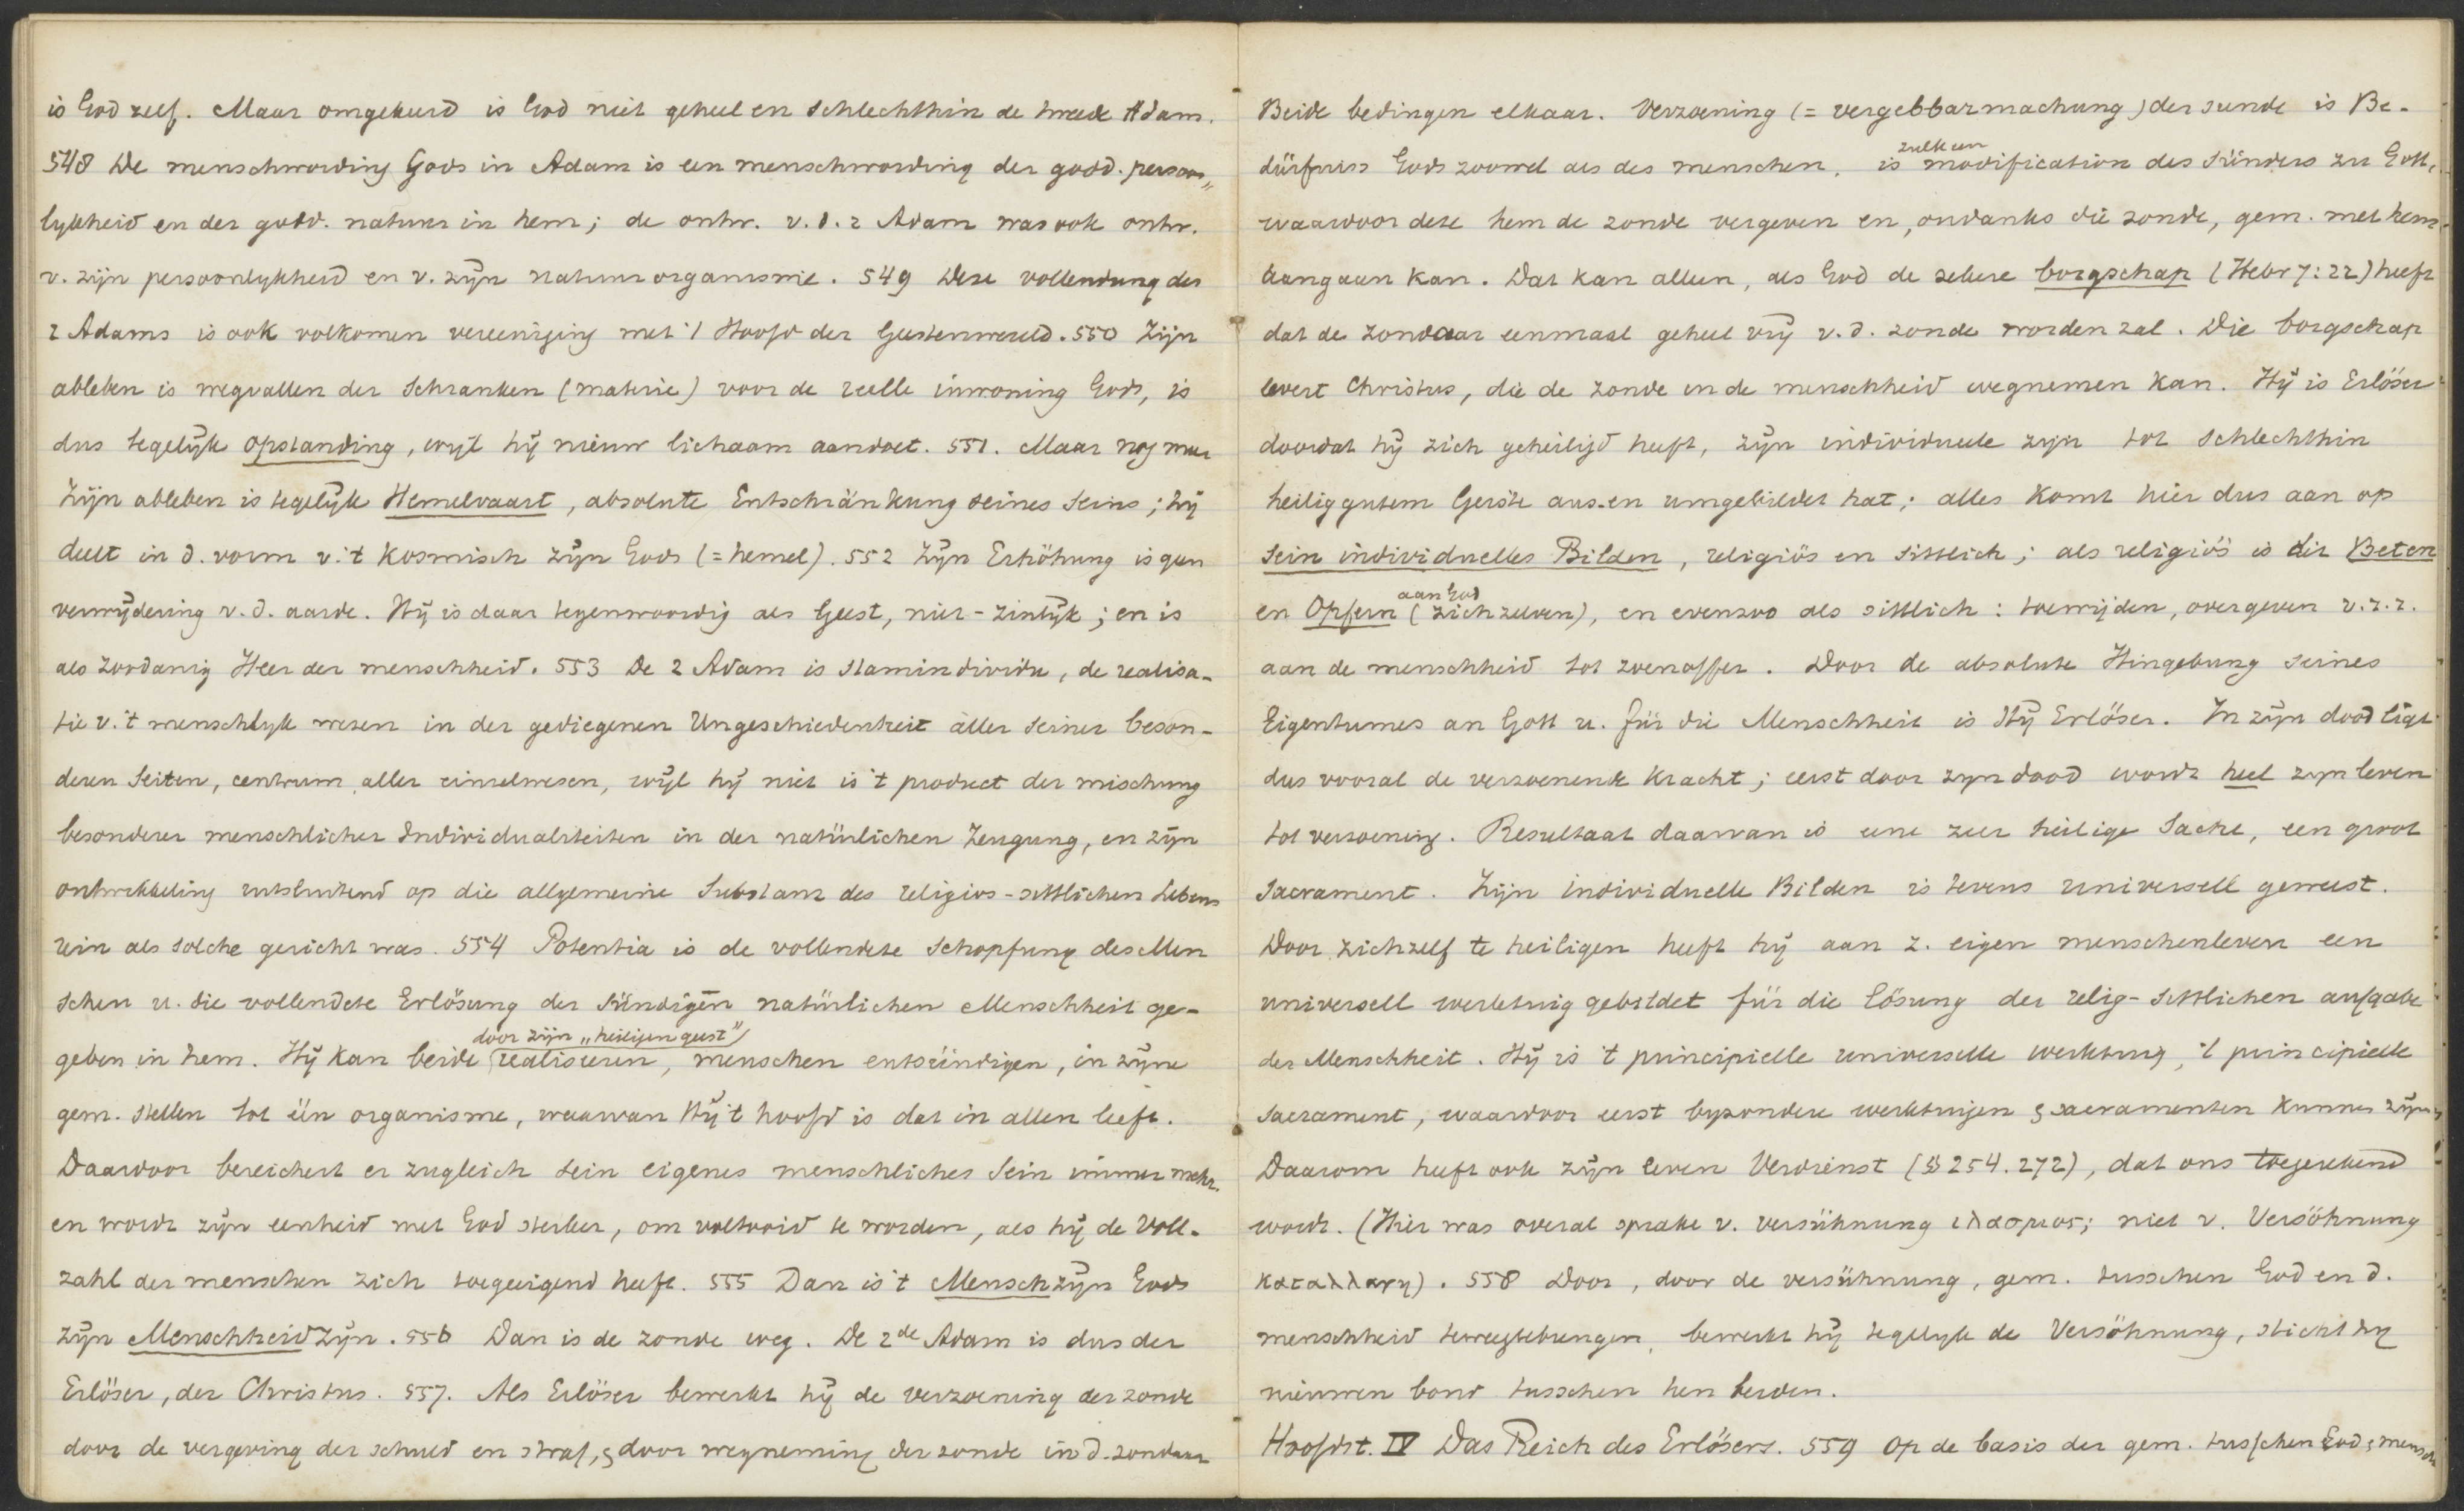 is God zelf. Maar omgekeerd is God niet geheel en schlechthin de tweede Adam.
548 De menschwording Gods in Adam is een menschwording der godd. persoon„
lykheid en der godd. natuur in hem; de ontw. v. d. 2 Adam was ook ontw.
v. zijn persoonlykheid en v. zijn natuurorganisme. 549 Deze vollendung des
2 Adams is ook volkomen vereeniging met 't Hoofd der Geestenwereld. 550 Zijn
ableben is wegvallen der Schranken (materie) voor de reelle inwoning Gods, is
dus tegelijk opstanding, wijl hij nieuw lichaam aandoet. 551. Maar nog meer
Zijn ableben is tegelijk Hemelvaart, absolute Entschränkung seines Seins; hij
deelt in d. vorm v. 't kosmisch zijn Gods (= hemel). 552 Zijn Erhöhung is geen
verwijdering v. d. aarde. Hij is daar tegenwoordig als Geest, niet-zinlijk; en is
als zoodanig Heer der menschheid. 553 De 2 Adam is stamindividu, de realisa-
tie v. 't menschlyk wezen in der gediegenen Ungeschiedenheit aller seiner beson-
deren Seiten, centrum aller einzelwesen, wijl hij niet is 't product der mischung
besonderer menschlicher Individualiteiten in der natürlichen Zeugung, en zijn
ontwikkeling uitsluitend op die allgemeine Substanz des religios-sittlichen Lebens
rein als solche gericht was. 554 Potentia is de vollendete Schopfung des Men
schen u. die vollendete Erlösung der sündigen natürlichen Menschheit ge-
door zijn „heiligen geest"
geben in hem. Hij kan beide realiseren, menschen entsündigen, in zijne
gem. stellen tot één organisme, waarvan Hij 't hoofd is dat in allen leeft.
Daardoor bereichert er zugleich sein eigenes menschliches Sein immer mehr.
en wordt zijn eenheid met God sterker, om voltooid te worden, als hij de Voll-
zahl der menschen zich toegeeigend heeft. 555 Dan is 't Menschzijn Gods
zijn Menschheidzijn. 556 Dan is de zonde weg. De 2de Adam is dus der
Erlöser, der Christus. 557. Als Erlöser bewerkt hij de verzoening der zonde
door de vergeving der schuld en straf, & door wegneming der zonde in d. zondaar
Beide bedingen elkaar. Verzoening (= vergebbarmachung) der sunde is Be-
dürfniss Gods zoowel als des menschen,
zulk een
is modification des Sünders zu Gott,
waardoor deze hem de zonde vergeven en, ondanks die zonde, gem. met hem
aangaan kan. Dat kan alleen, als God de zekere borgschap (Hebr 7:22) heeft
dat de zondaar eenmaal geheel vrij v. d. zonde worden zal. Die borgschap
levert Christus, die de zonde in de menschheid wegnemen kan. Hij is Erlöser
doordat hij zich geheiligd heeft, zijn individueele zijn tot schlechthin
heilig gutem Geiste aus- en umgebildet hat; alles komt hier dus aan op
sein individuelles Bilden, religiös en sittlich; als religiös is dit Beten
aan God
en Opfern (zichzelven), en evenzoo als sittlich: toewijden, overgeven v. z. z.
aan de menschheid tot zoenoffer. Door de absolute Hingebung seines
Eigentumes an Gott u. für die Menschheit is Hij Erlöser. In zijn dood ligt
dus vooral de verzoenende kracht; eerst door zyn dood wordt heel zyn leven
tot verzoening. Resultaat daarvan is eene zeer heilige Sache, een groot
Sacrament. Zijn individuelle Bilden is tevens universell geweest.
Door zichzelf te heiligen heeft hij aan z. eigen menschenleven een
universell werktuig gebildet für die Lösung der relig-sittlichen aufgabe
der Menschheit. Hij is 't principielle universelle werktuig, 't principielle
Sacrament, waardoor eerst byzondere werktuigen & sacramenten kunnen zijn.
Daarom heeft ook zijn leven Verdienst (§§ 254. 272), dat ons toegerekend
wordt. (Hier was overal sprake v. versühnung ιλασμος; niet v. Versöhnung
καταλλαγη). 558 Door, door de versühnung, gem. tusschen God en d.
menschheid teweegtebrengen, bewerkt hij tegelyk de Versöhnung, sticht hy
nieuwen bond tusschen hen beiden.
Hoofdst. IV Das Reich des Erlösers. 559 Op de basis der gem. tusschen God & mensch